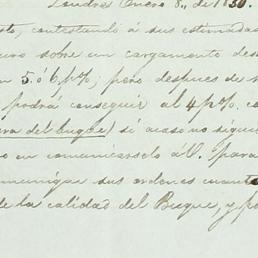 Londres Enero 8,, de 1830.
sto, contestando á sus estimadas
uro sobre un cargamento des
n 5. ó 6. p%, pero despues de
podrá conseguir al 4 p%. c
ra del buque) si acaso no sigui
o en comunicarselo á V. para
munique sus ordenes cuant
de la calidad del Buque, y po